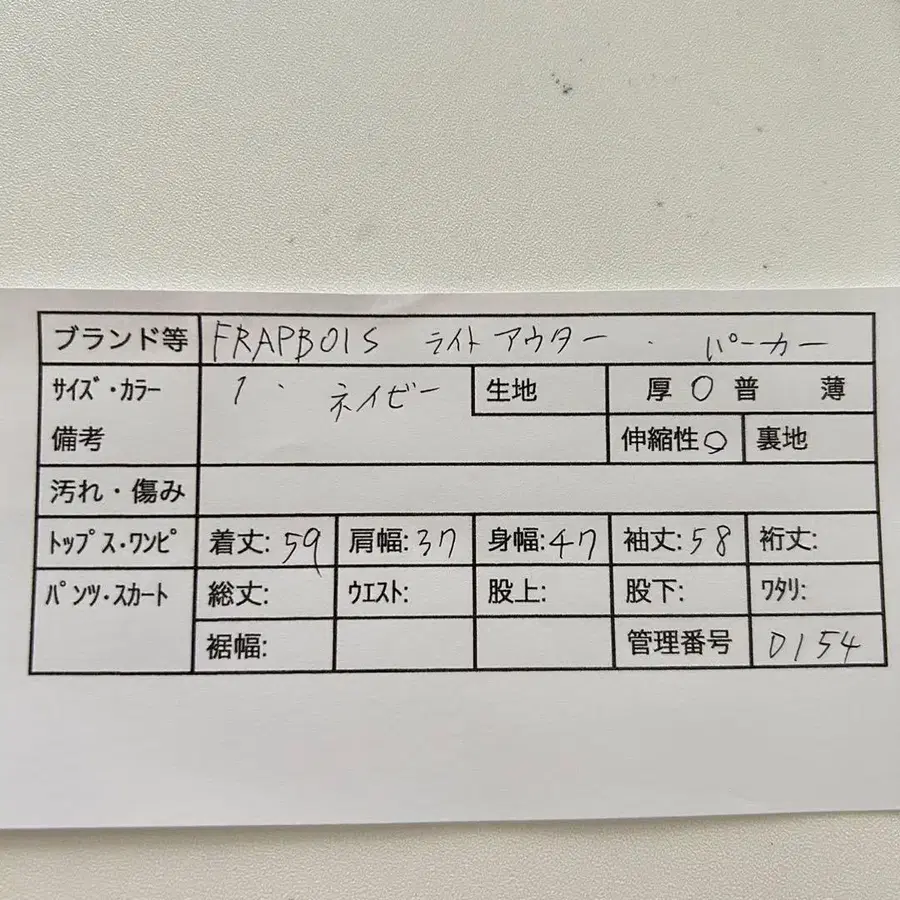 ブランド等 FRAPBOIS ライトアウター . パーカー
サイズ・カラー 1 . ネイビー 生地 厚 〇 普 薄
備考 伸縮性〇 裏地
汚れ・傷み
トップス・ワンピ 着丈: 59 肩幅: 37 身幅: 47 袖丈: 58 裄丈:
パンツ・スカート 総丈: ウエスト: 股上: 股下: ワタリ:
裾幅: 管理番号 D154